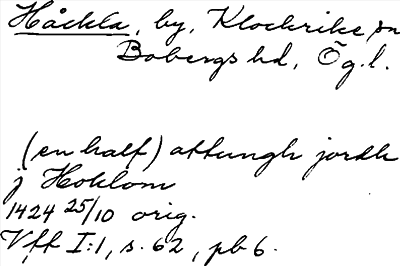 Håckla, by, Klockrike sn
Bobergs hd, Ög.l.
(en half) attungh jordh
j Hoklom
1424 25/10 orig.
Vff I:1, s. 62, pb 6.